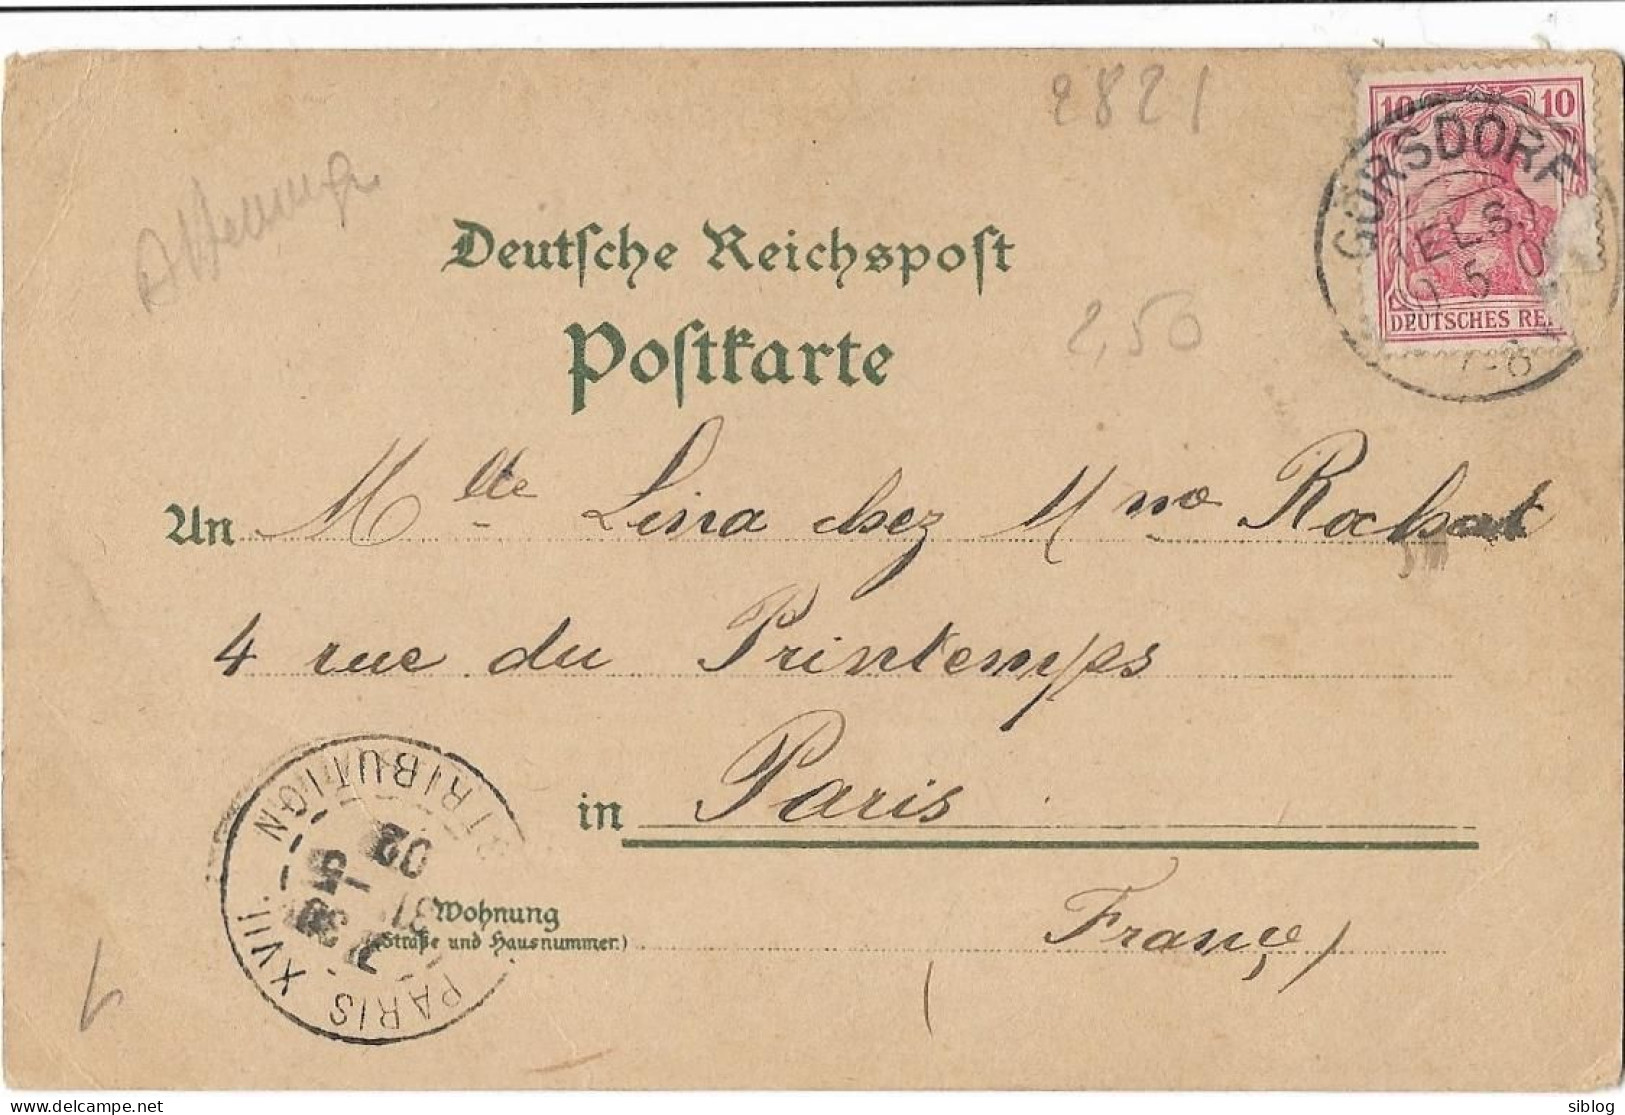 2821
10 10
GÖRSDORF
(ELS.
5 0
DEUTSCHES RE
7-8
Deutsche Reichspost
2,50
Postkarte
An Mlle Lina chez Mme Rochat
4 rue du Printemps
in Paris
Wohnung
(Straße und Hausnummer.)
(France)
PARIS XVII. DISTRIBUTION
7 30
31 5
02
delcampe.net
siblog